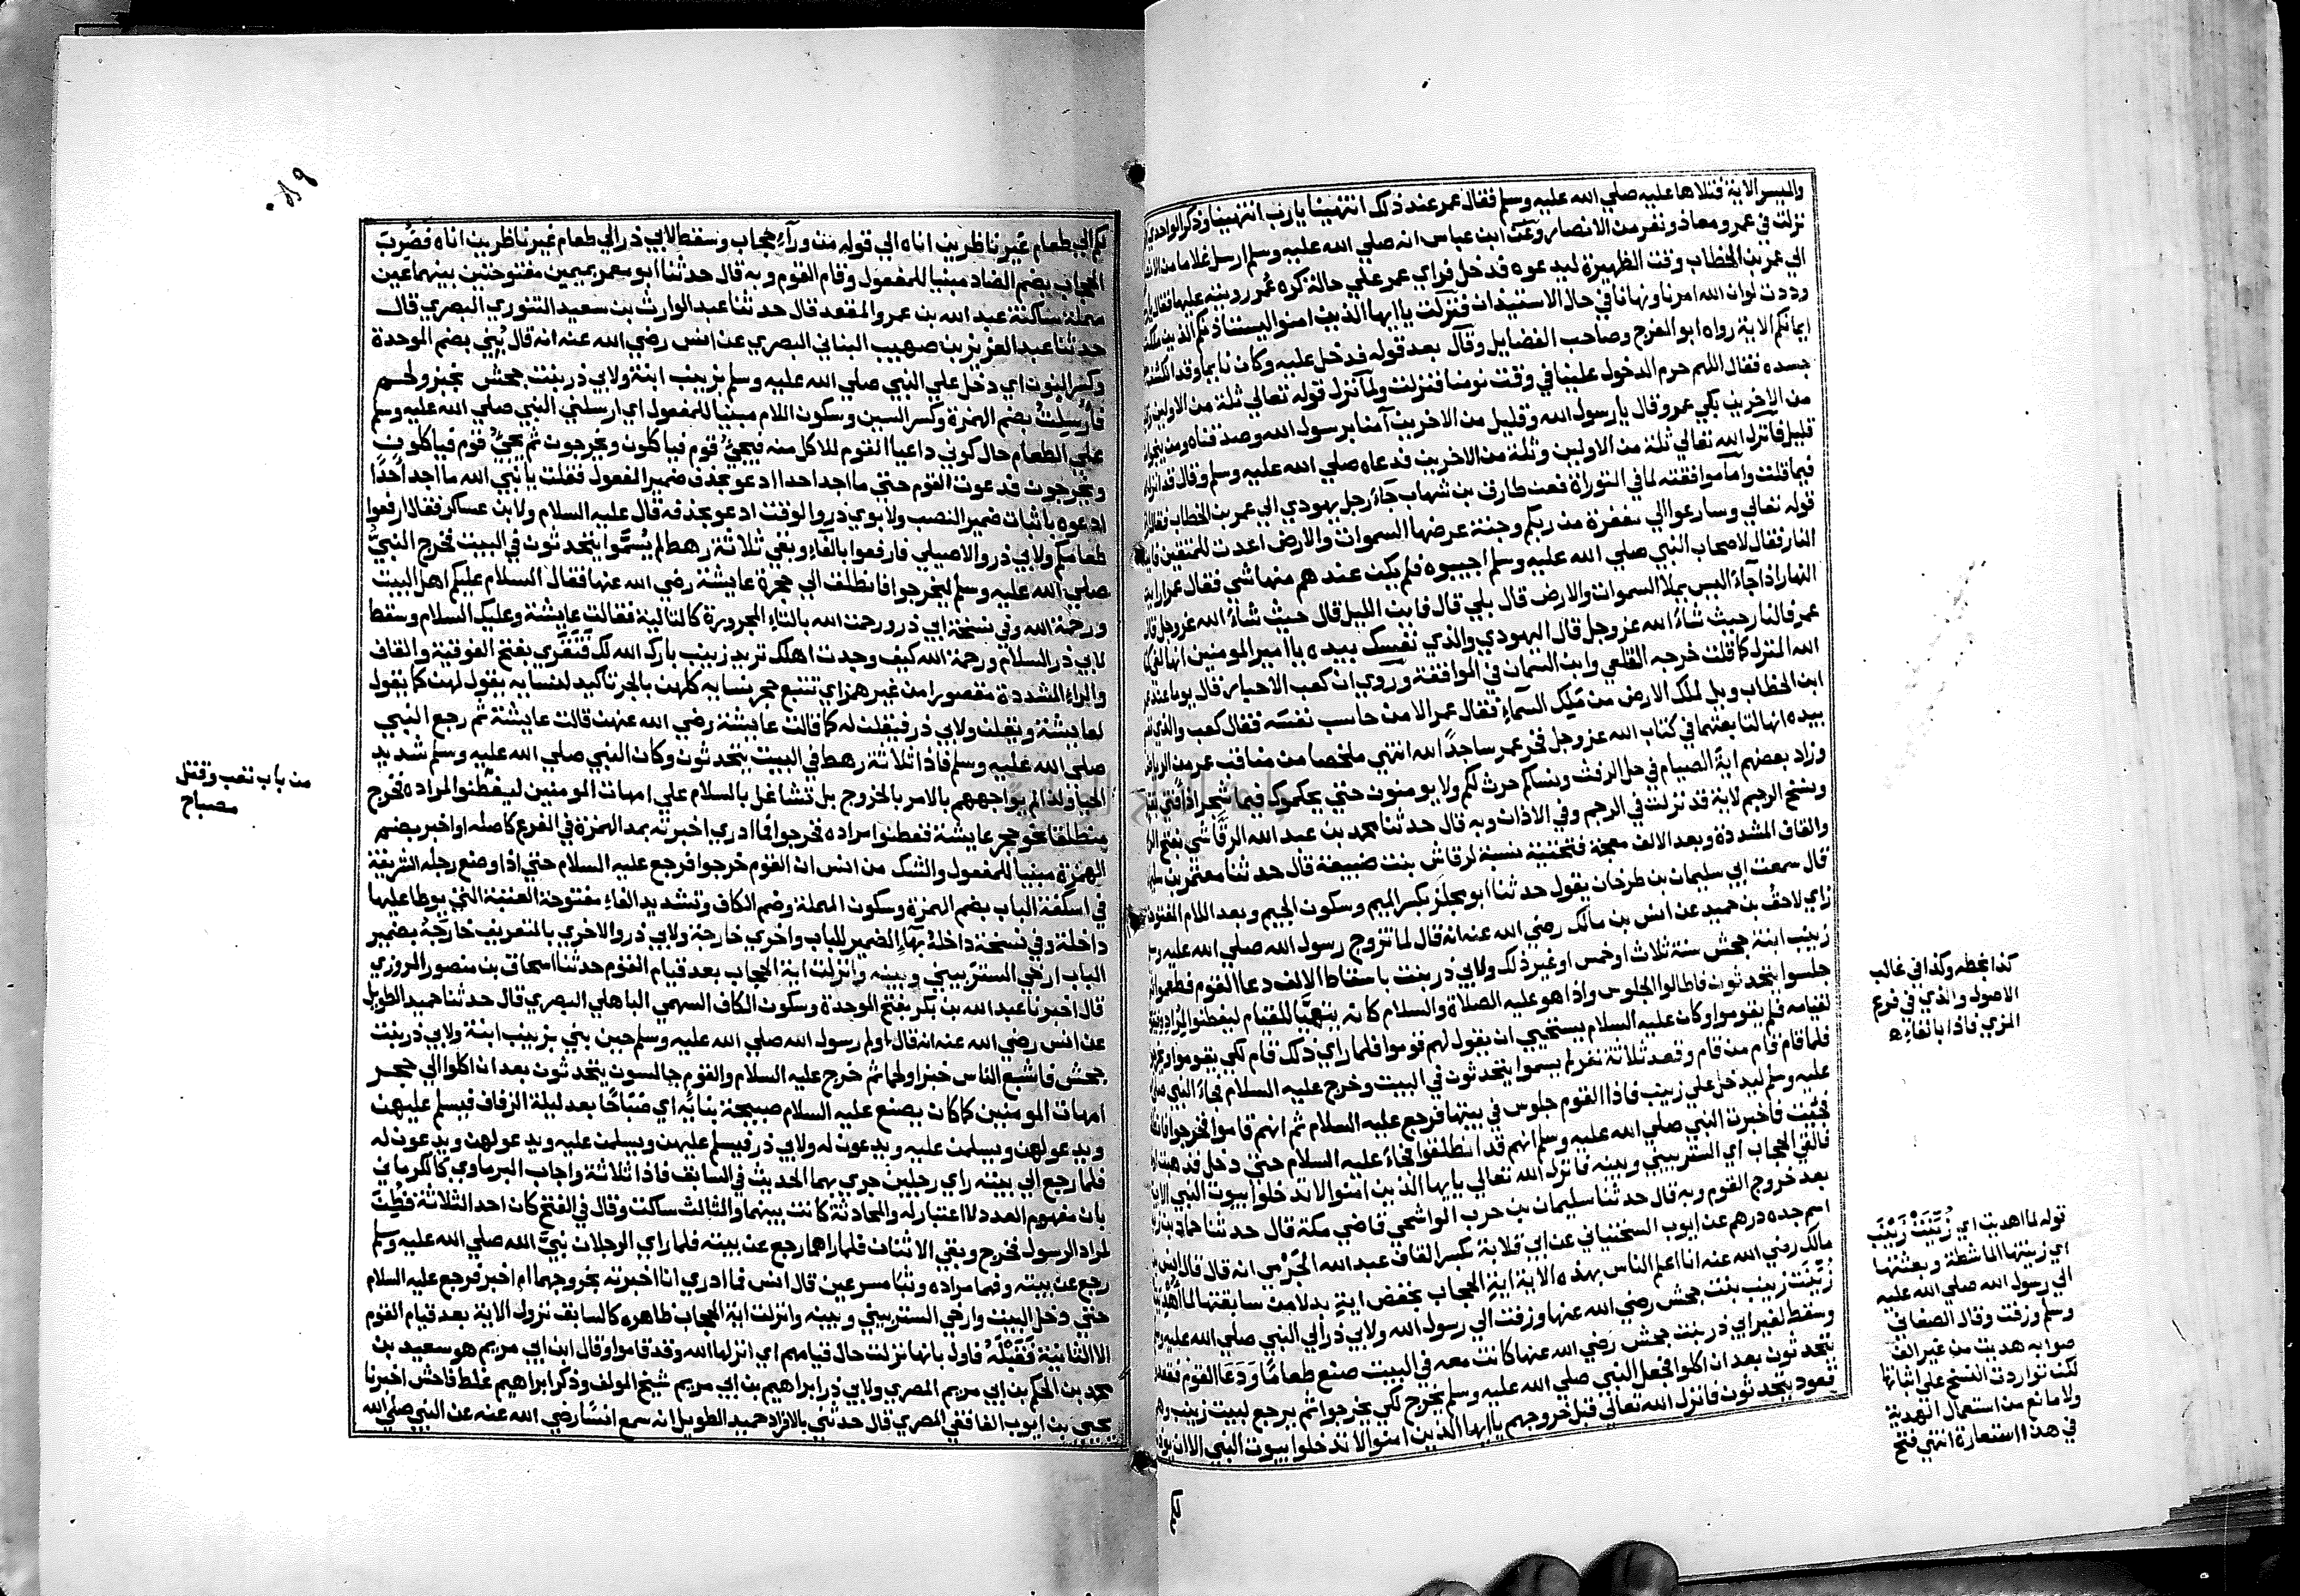 والميسر الاية فتلاها عليه صلي الله عليه وسلم فقال عمر عند ذلك انتهينا يارب انتهينا وذكر الواحدي
نزلت في عمر ومعاذ ونفر من الانصار وعن ابن عباس انه صلي الله عليه وسلم ارسل غلاما من
الي عمر بن الخطاب وقت الظهيرة ليدعوه فدخل فراي عمر علي حالة كره عمر رويته عليها فقال
وددت لوان الله امرنا ونهانا في حال الاستيذان فنزلت ياايها الذين امنوا ليستاذنكم الذين ملكت
ايمانكم الاية رواه ابو الفرج وصاحب الفضايل وقال بعد قوله فدخل عليه وكان نايما وقد انكشف
جسده فقال اللهم حرم الدخول علينا في وقت نومنا فنزلت ولما نزل قوله تعالي ثلة من الاولين
من الاخرين بكي عمر وقال يارسول الله وقليل من الاخرين آمنا برسول الله وصدقناه ومن
قليل فانزل الله تعالي ثلة من الاولين وثلة من الاخرين فدعاه صلي الله عليه وسلم وقال قد
فيما قلت واما موافقته لما في التوراة فعن طارق بن شهاب جاء رجل يهودي الي عمر بن الخطاب فقال
قوله تعالي وسارعوا الي مغفرة من ربكم وجنة عرضها السموات والارض اعدت للمتقين
النار فقال لاصحاب النبي صلي الله عليه وسلم اجيبوه فلم يكن عندهم منها شي فقال عمر
النهار اذا جاء اليس يملا السموات والارض قال بلي قال فاين الليل قال حيث شاء الله عز وجل قال
عمر فالنار حيث شاء الله عز وجل قال اليهودي والذي نفسك بيده ياامير المومنين انها لفي
الله المنزل كما قلت خرجه القلعي وابن السمان في الموافقة وروي ان كعب الاحبار قال يوما عند
ابن الخطاب ويل لملك الارض من مليك السماء فقال عمر الا من حاسب نفسه فقال كعب والذي
بيده انها لتابعتها في كتاب الله عز وجل فخر عمر ساجدا لله انتهي ملخصا من مناقب عمر من
وزاد بعضهم اية الصيام في حل الرفث ونساكم حرث لكم ولا يومنون حتي يحكموك فيما شجر
ونسخ الرجم لاية قد نزلت في الرجم وفي الاذان وبه قال حدثنا محمد بن عبد الله الرقاشي بفتح
والقاف المشددة وبعد الالف معجمة فتحتية نسبة لرقاش بنت ضبيعة قال حدثنا معتمر بن
قال سمعت ابي سليمان بن طرخان يقول حدثنا ابو مجلز بكسر الميم وسكون الجيم وبعد اللام المفتوحة
زاي لاحق بن حميد عن انس بن مالك رضي الله عنه انه قال لما تزوج رسول الله صلي الله عليه
زينب ابنة جحش سنة ثلاث او خمس او غير ذلك ولابي ذر بنت باسقاط الالف دعا القوم فطعموا
جلسوا يتحدثون فاطالوا الجلوس واذا هو عليه الصلاة والسلام كانه يتهيا للقيام ليفطنوا لمراده
لقيامه فلم يقوموا وكان عليه السلام يستحيي ان يقول لهم قوموا فلما راي ذلك قام لكي يقوموا
فلما قام قام من قام وقعد ثلاثة نفر لم يسموا يتحدثون في البيت وخرج عليه السلام فجاء النبي
عليه وسلم ليدخل علي زينب فاذا القوم جلوس في بيتها فرجع عليه السلام ثم انهم قاموا فخرجوا
فجئت فاخبرت النبي صلي الله عليه وسلم انهم قد انطلقوا فجاء عليه السلام حتي دخل فذهبت
فالقي الحجاب اي الستر بيني وبينه فانزل الله تعالي ياايها الذين امنوا لا تدخلوا بيوت النبي الاية
بعد خروج القوم وبه قال حدثنا سليمان بن حرب الواشحي قاضي مكة قال حدثنا حماد بن
اسم جده درهم عن ايوب السختياني عن ابي قلابة بكسر القاف عبد الله الجرمي انه قال قال انس
مالك رضي الله عنه انا اعلم الناس بهذه الاية اية الحجاب بخفض اية بدلا من سابقتها لما
زينت زينب بنت جحش رضي الله عنها وزفت الي رسول الله ولابي ذر الي النبي صلي الله عليه
وسقط لغير ابي ذر بنت جحش رضي الله عنها كانت معه في البيت صنع طعاما ودعا القوم فقعدوا
يتحدثون بعد ان اكلوا فجعل النبي صلي الله عليه وسلم يخرج لكي يخرجوا ثم يرجع لبيت زينب
قعود يتحدثون فانزل الله تعالي قبل خروجهم ياايها الذين امنوا لا تدخلوا بيوت النبي الا ان
كذا بخطه وكذا في غالب
الاصول والذي في فرع
المزي فاذا بالفاء
قوله لما اهديت اي زينت زينب
اي زينتها الماشطة وبعثتها
الي رسول الله صلي الله عليه
وسلم وزفت وقال الصغاني
صوابه هديت من غير الف
لكن تواردت النسخ علي اثباتها
ولا مانع من استعمال الهدية
في هذا استعارة انتهي فتح
لكم الي طعام غير ناظرين اناه الي قوله من وراء حجاب وسقط لابي ذر الي طعام غير ناظرين اناه فضرب
الحجاب بضم الضاد مبنيا للمفعول وقام القوم وبه قال حدثنا ابو معمر بميمين مفتوحتين بينهما عين
مهملة ساكنة عبد الله بن عمرو المقعد قال حدثنا عبد الوارث بن سعيد التنوري البصري قال
حدثنا عبد العزيز بن صهيب البناني البصري عن انس رضي الله عنه انه قال بني بضم الموحدة
وكسر النون اي دخل علي النبي صلي الله عليه وسلم بزينب ابنة ولابي ذر بنت جحش بخبز ولحم
فارسلت بضم الهمزة وكسر السين وسكون اللام مبنيا للمفعول اي ارسلني النبي صلي الله عليه وسلم
علي الطعام حال كوني داعيا القوم للاكل منه فيجيء قوم فياكلون ويخرجون ثم يجيء قوم فياكلون
ويخرجون فدعوت القوم حتي ما اجد احدا ادعو بحذف ضمير المفعول فقلت يانبي الله ما اجد احدا
ادعوه باثبات ضمير النصب ولابوي ذر والوقت ادعو بحذفه قال عليه السلام ولابن عساكر فقال ارفعوا
طعامكم ولابي ذر والاصيلي فارفعوا بالفاء وبقي ثلاثة رهط لم يسموا يتحدثون في البيت فخرج النبي
صلي الله عليه وسلم ليخرجوا فانطلق الي حجرة عايشة رضي الله عنها فقال السلام عليكم اهل البيت
ورحمة الله وفي نسخة ابي ذر ورحمت الله بالتاء المجرورة كالتالية فقالت عايشة وعليك السلام وسقط
لابي ذر السلام ورحمة الله كيف وجدت اهلك تريد زينب بارك الله لك فتقري بفتح الفوقية والقاف
والراء المشددة مقصورا من غير همز اي تتبع حجر نسايه كلهن بالجر تاكيد لنسايه يقول لهن كما يقول
لعايشة ويقلن ولابي ذر فيقلن له كما قالت عايشة رضي الله عنهن قالت عايشة ثم رجع النبي
صلي الله عليه وسلم فاذا ثلاثة رهط في البيت يتحدثون وكان النبي صلي الله عليه وسلم شديد
الحيا ولذا لم يواجههم بالامر بالخروج بل تشاغل بالسلام علي امهات المومنين ليفطنوا لمراده فخرج
منطلقا نحو حجر عايشة ففطنوا مراده فخرجوا فما ادري اخبرته بمد الهمزة في الفرع كاصله او اخبر بضم
الهمزة مبنيا للمفعول والشك من انس ان القوم خرجوا فرجع عليه السلام حتي اذا وضع رجله الشريفة
في اسكفة الباب بضم الهمزة وسكون المهملة وضم الكاف وتشديد الفاء مفتوحة العتبة التي يوطا عليها
داخلة وفي نسخة داخله بهاء الضمير للباب واخري خارجة ولابي ذر والاخري بالتعريف خارجه بضمير
الباب ارخي الستر بيني وبينه وانزلت اية الحجاب بعد قيام القوم حدثنا اسحاق بن منصور المروزي
قال اخبرنا عبد الله بن بكر بفتح الموحدة وسكون الكاف السهمي الباهلي البصري قال حدثنا حميد الطويل
عن انس رضي الله عنه انه قال اولم رسول الله صلي الله عليه وسلم حين بني بزينب ابنة ولابي ذر بنت
جحش فاشبع الناس خبزا ولحما ثم خرج عليه السلام والقوم جالسون يتحدثون بعد ان اكلوا الي حجر
امهات المومنين كما كان يصنع عليه السلام صبيحة بنايه اي صباحا بعد ليلة الزفاف فيسلم عليهن
ويدعو لهن ويسلمن عليه ويدعون له ولابي ذر فيسلم عليهن ويسلمن عليه ويدعو لهن ويدعون له
فلما رجع الي بيته راي رجلين جري بهما الحديث في السابق فاذا ثلاثة واجاب البرماوي كالكرماني
بان مفهوم العدد لا اعتبار له والمحادثة كانت بينهما والثالث ساكت وقال في الفتح كان احد الثلاثة فطن
لمراد الرسول فخرج وبقي الاثنان فلما راهما رجع عن بيته فلما راي الرجلان نبي الله صلي الله عليه وسلم
رجع عن بيته وفهما مراده وثبا مسرعين قال انس فما ادري انا اخبرته بخروجهما ام اخبر فرجع عليه السلام
حتي دخل البيت وارخي الستر بيني وبينه وانزلت اية الحجاب ظاهره كالسابق نزول الاية بعد قيام القوم
الا الثانية فقبله فاول بانها نزلت حال قيامهم اي انزلها الله وقد قاموا وقال ابن ابي مريم هو سعيد بن
محمد بن الحكم بن ابي مريم المصري ولابي ذر ابراهيم بن ابي مريم شيخ المولف وذكر ابراهيم غلط فاحش اخبرنا
يحيي بن ايوب الغافقي المصري قال حدثني بالافراد حميد الطويل انه سمع انسا رضي الله عنه عن النبي صلي الله
من باب تعب وقتل
مصباح